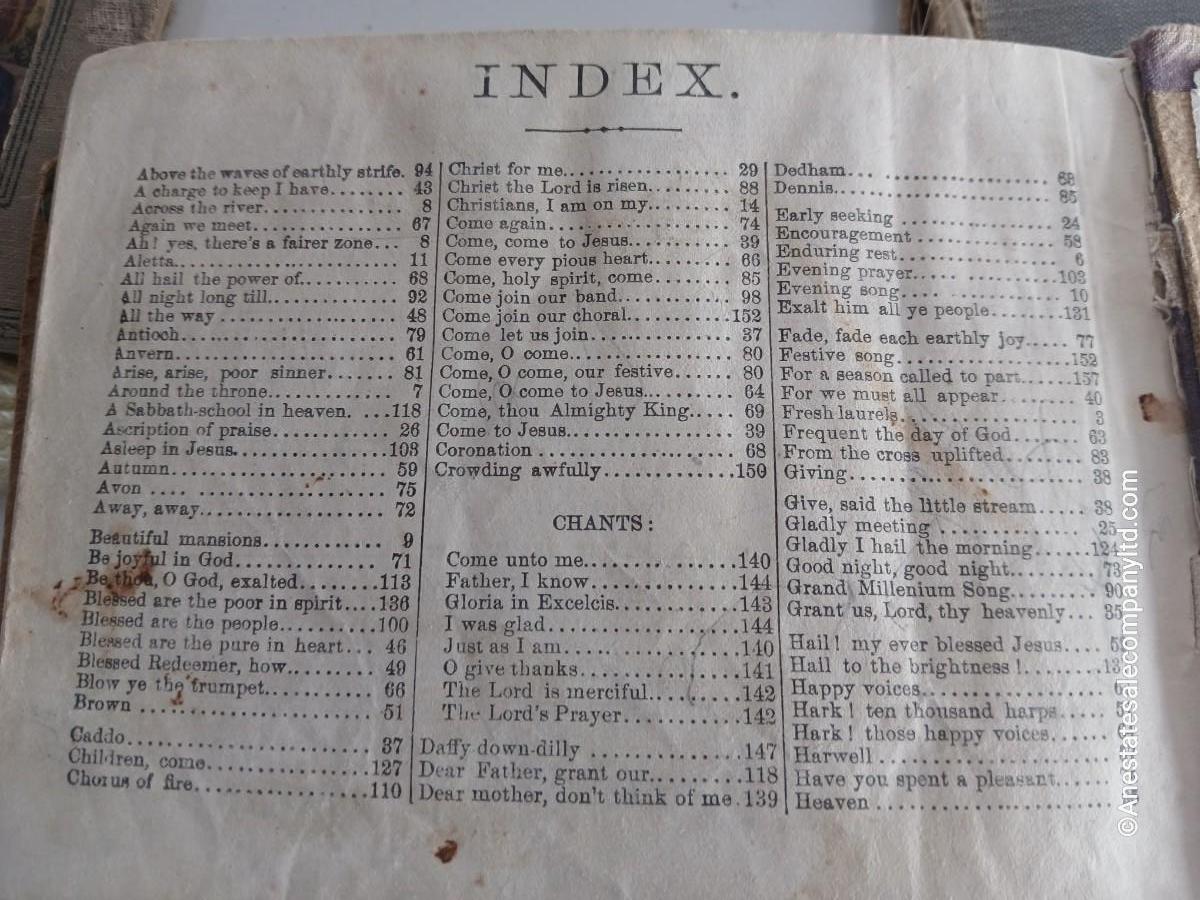 INDEX.
Above the waves of earthly strife. 94
A charge to keep I have........ 43
Across the river.............. 8
Again we meet............... 67
Ah! yes, there's a fairer zone... 8
Aletta...................... 11
All hail the power of.......... 68
All night long till............. 92
All the way .................. 48
Antioch..................... 79
Anvern..................... 61
Arise, arise, poor sinner....... 81
Around the throne............ 7
A Sabbath-school in heaven. ...118
Ascription of praise............ 26
Asleep in Jesus...............103
Autumn..................... 59
Avon .... ................... 75
Away, away.................. 72
Beautiful mansions............ 9
Be joyful in God.............. 71
Be thou, O God, exalted........113
Blessed are the poor in spirit....136
Blessed are the people..........100
Blessed are the pure in heart... 46
Blessed Redeemer, how......... 49
Blow ye the trumpet........... 66
Brown ...................... 51
Caddo....................... 37
Children, come...............127
Chorus of fire................110
Christ for me................. 29
Christ the Lord is risen........ 88
Christians, I am on my......... 14
Come again.................. 74
Come, come to Jesus........... 39
Come every pious heart......... 66
Come, holy spirit, come........ 85
Come join our band............ 98
Come join our choral...........152
Come let us join.............. 37
Come, O come................ 80
Come, O come, our festive...... 80
Come, O come to Jesus......... 64
Come, thou Almighty King..... 69
Come to Jesus................ 39
Coronation .................. 68
Crowding awfully.............150
CHANTS:
Come unto me................140
Father, I know...............144
Gloria in Excelcis.............143
I was glad...................144
Just as I am.... .............140
O give thanks................141
The Lord is merciful...........142
The Lord's Prayer.............142
Daffy down-dilly .............147
Dear Father, grant our.........118
Dear mother, don't think of me.139
Dedham... .................. 68
Dennis...................... 85
Early seeking ................ 24
Encouragement .............. 58
Enduring rest................ 6
Evening prayer..... ..........103
Evening song.... ............ 10
Exalt him all ye people.........131
Fade, fade each earthly joy..... 77
Festive song.................152
For a season called to part......157
For we must all appear......... 40
Fresh laurels................. 3
Frequent the day of God........ 63
From the cross uplifted......... 83
Giving...................... 38
Give, said the little stream..... 38
Gladly meeting ............... 25
Gladly I hail the morning......124
Good night, good night......... 73
Grand Millenium Song.......... 90
Grant us, Lord, thy heavenly... 35
Hail! my ever blessed Jesus....
Hail to the brightness!........
Happy voices................
Hark! ten thousand harps.....
Hark! those happy voices......
Harwell ....................
Have you spent a pleasant.....
Heaven ....................
©Anestatesalecompanyltd.com